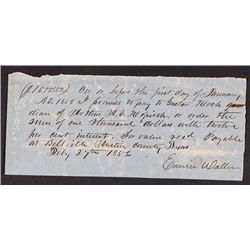 ($1000.00) On or before the first day of January
A.D. 1858 I promise to pay to Gustav Koch guar
dian of Arthur A. Hopisch, or order the
sum of one thousand dollars with twelve
per cent interest. for value recd. Payable
at Bellville Austin County Texas
Feby 27th 1856
Edwin Waller